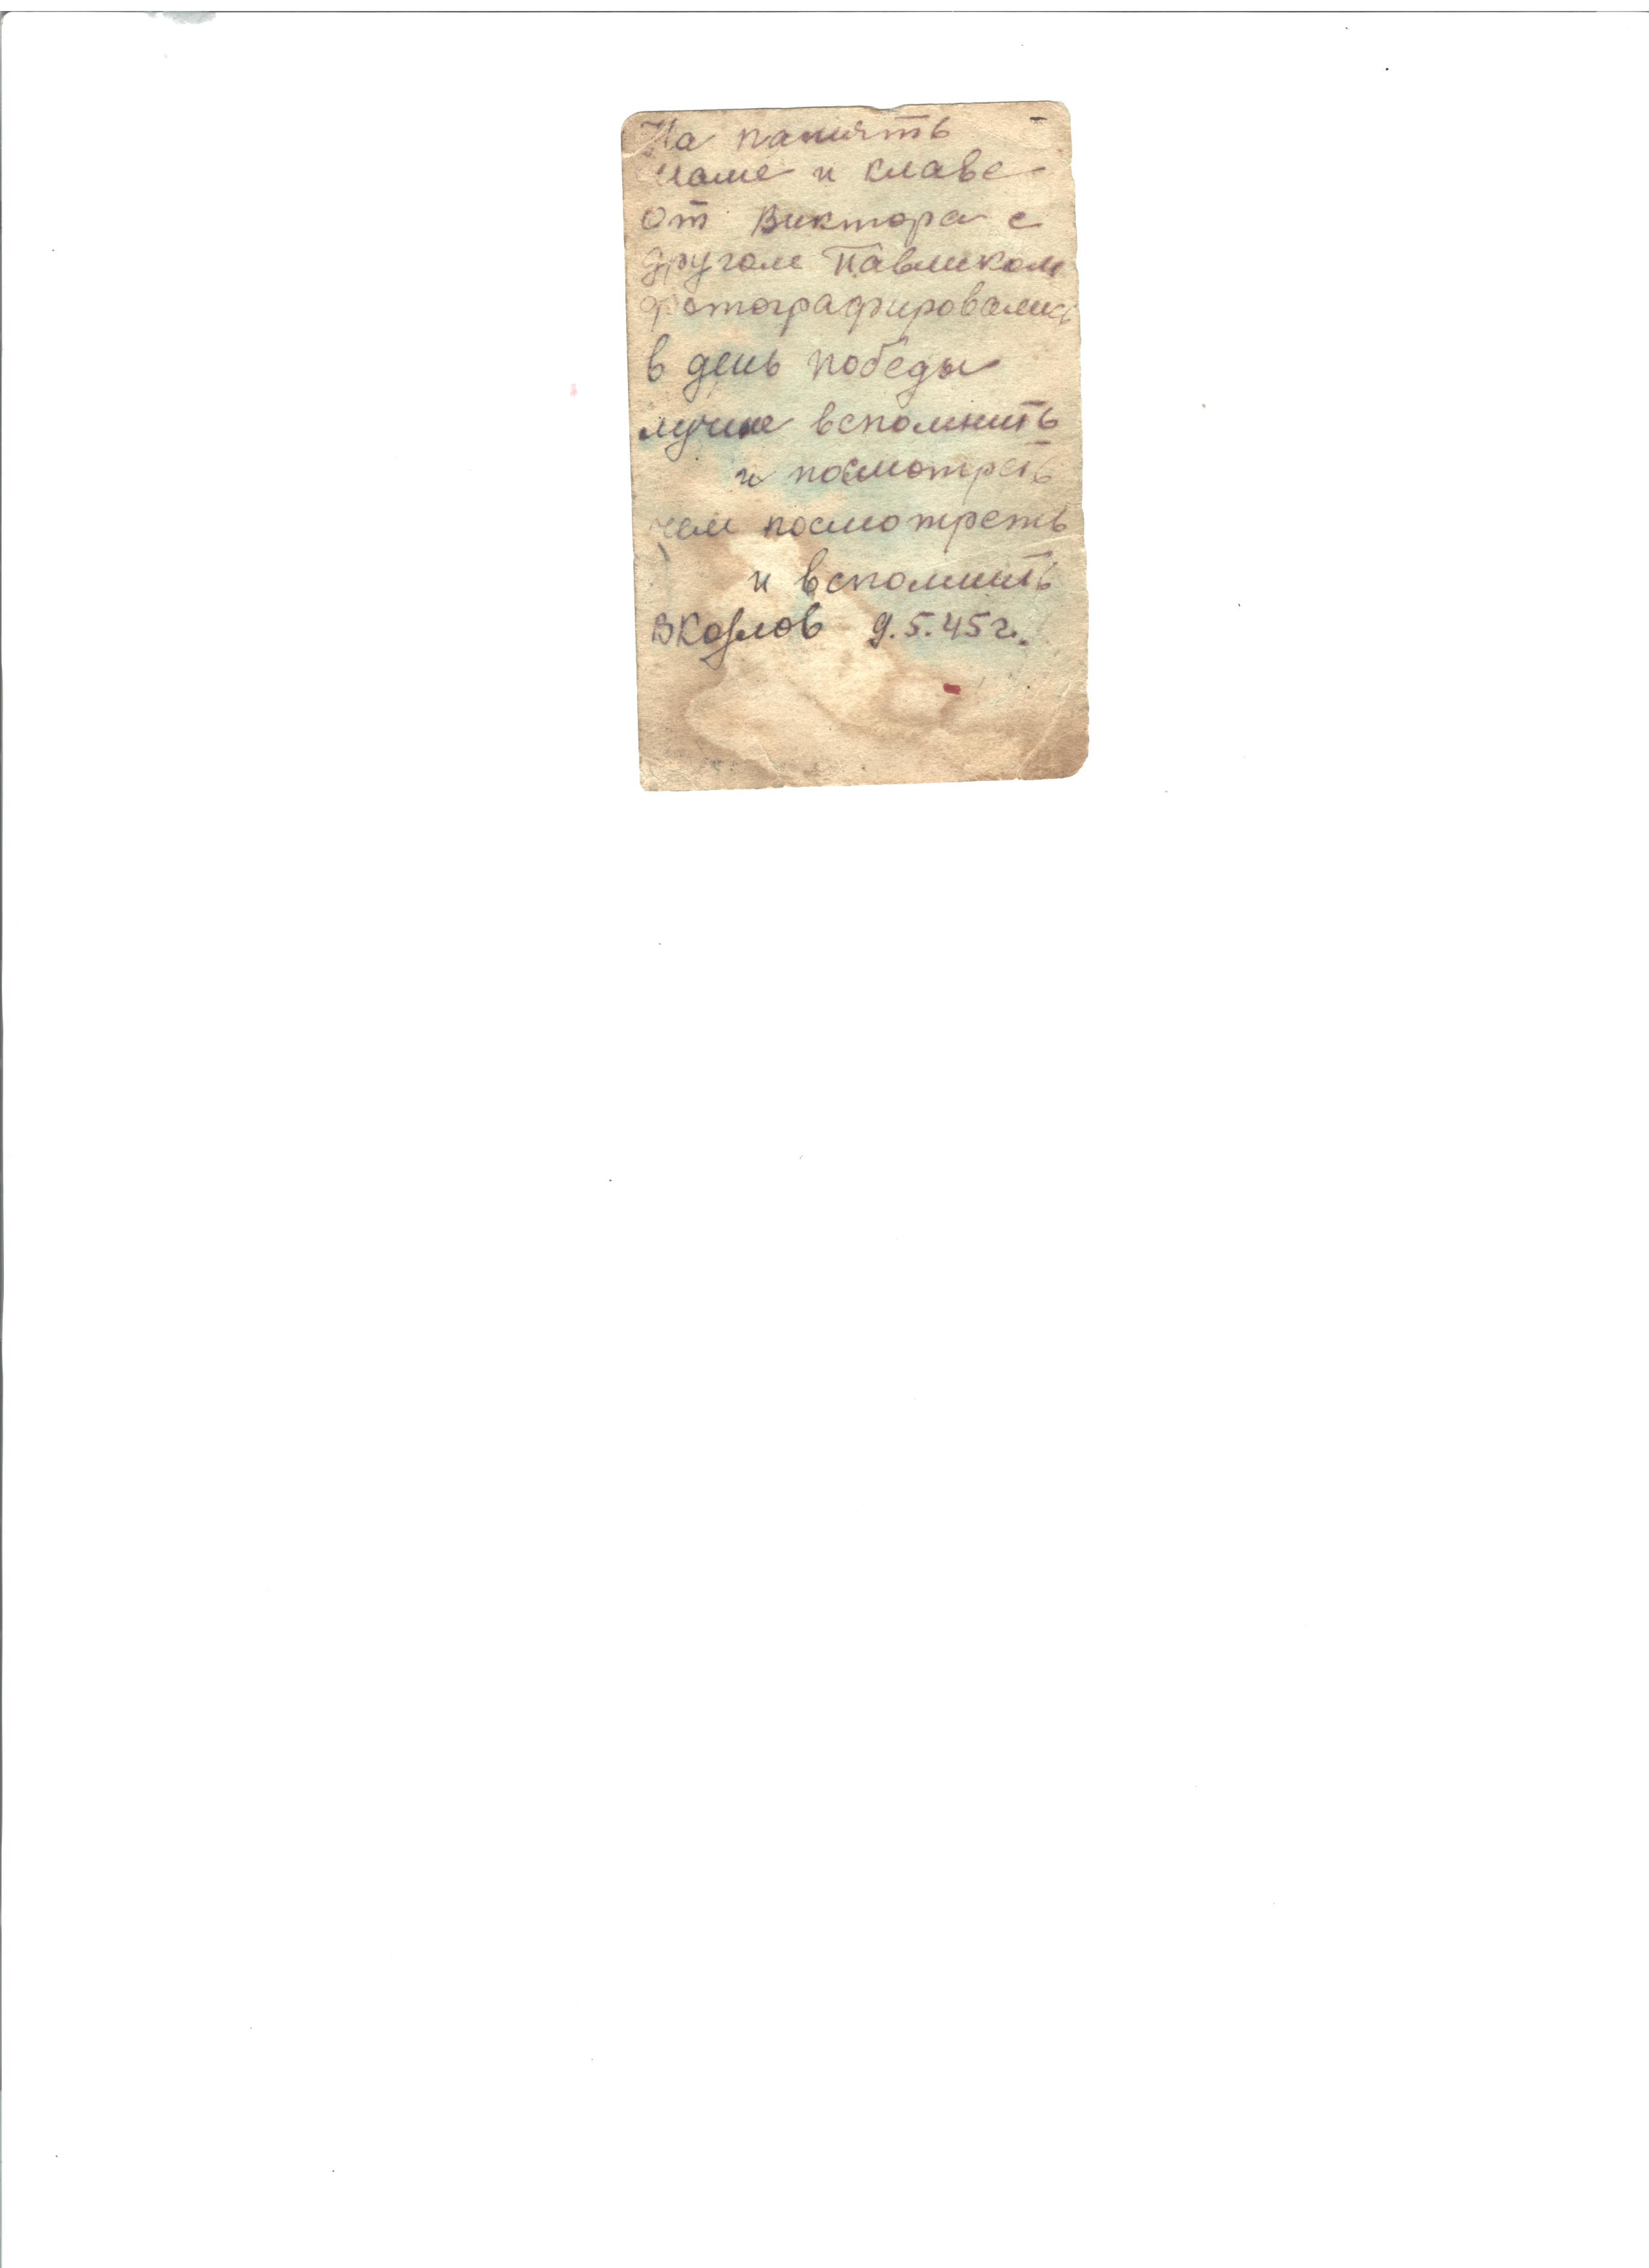 На память
маме и клаве
от Виктора с
другом Павликом
фотографировались
в день победы
лучше вспомнить
и посмотреть
чем посмотреть
и вспомнить
ВКозлов 9.5.45г.